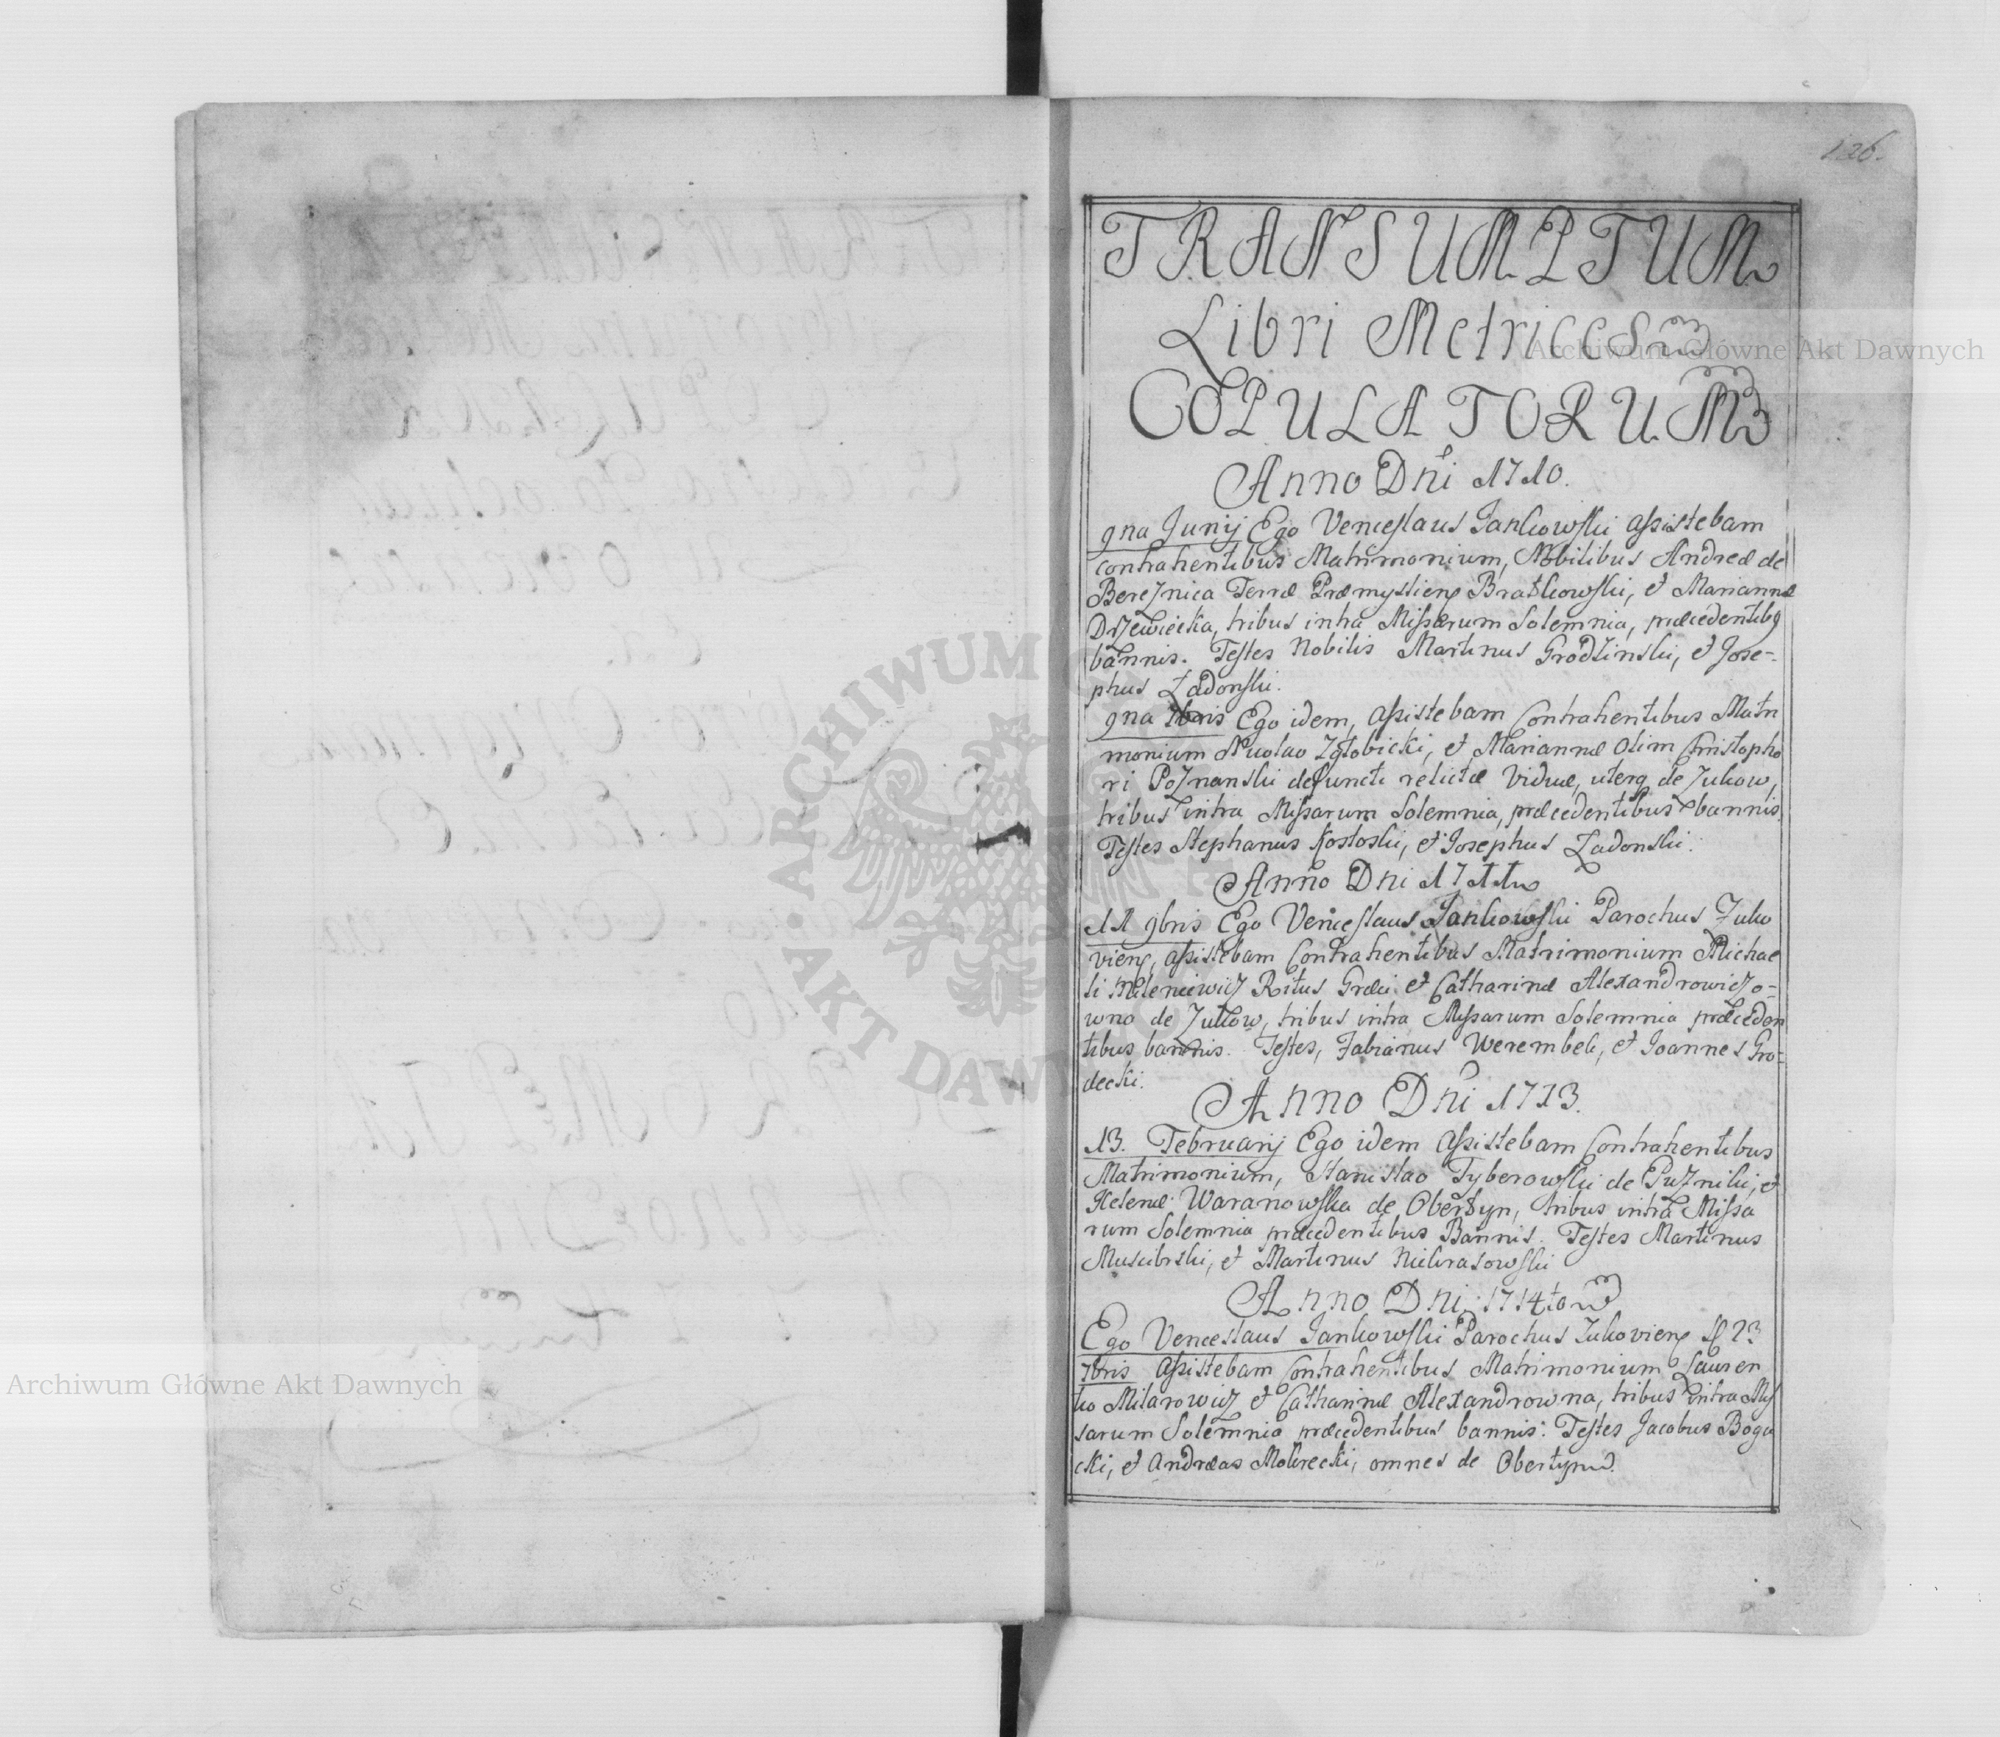 126.
TRANSUMPTUM
Libri Metrices
COPULATORUM
Anno Dñi 1710.
9na Junij Ego Venceslaus Jankowski assistebam
contrahentibus Matrimonium, Nobilibus Andreæ de
Bereznica Terræ Præmysliens Bratkowski, et Mariannæ
Drzewiecka, tribus intra Missarum Solemnia, præcedentibq
bannis. Testes Nobilis Martinus Grodzinski, et Jose-
phus Zadonski.
9na Ego idem, assistebam Contrahentibus Matri
monium Nicolao Zglobicki, et Mariannæ Olim Christopho
ri Poznanski defuncti relictæ Viduæ, uterq de Zukow,
tribus intra Missarum Solemnia, præcedentibus bannis,
Testes Stephanus Kostoski, et Josephus Zadonski.
Anno Dni 1711
11 9bris Ego Venceslaus Jankowski Parochus Zuko
viens, assistebam Contrahentibus Matrimonium Michae
li Mileniewicz Ritus Græci et Catharinæ Alexandrowiczo-
wno de Zukow, tribus intra Missarum Solemnia præceden
tibus bannis. Testes, Fabianus Werembek, et Joannes Gro-
decki.
Anno Dñi 1713.
13. Februarij Ego idem assistebam Contrahentibus
Matrimonium, Stanislao Tyberowski de Puzniki, et
Helenæ Waranowska de Obertyn, tribus intra Missa
rum Solemnia præcedentibus Bannis. Testes Martinus
Muscibrski, et Martinus Niekrasowski
Anno Dni 1714to
Ego Venceslaus Jankowski Parochus Zukoviens 23
7bris assistebam Contrahentibus Matrimonium Lauren
tio Milarowicz et Catharinæ Alexandrowna, tribus intra Mis
sarum Solemnia præcedentibus bannis: Testes Jacobus Bogu
cki, et Andræas Mokrecki, omnes de Obertyn.
Archiwum Główne Akt Dawnych
Archiwum Główne Akt Dawnych